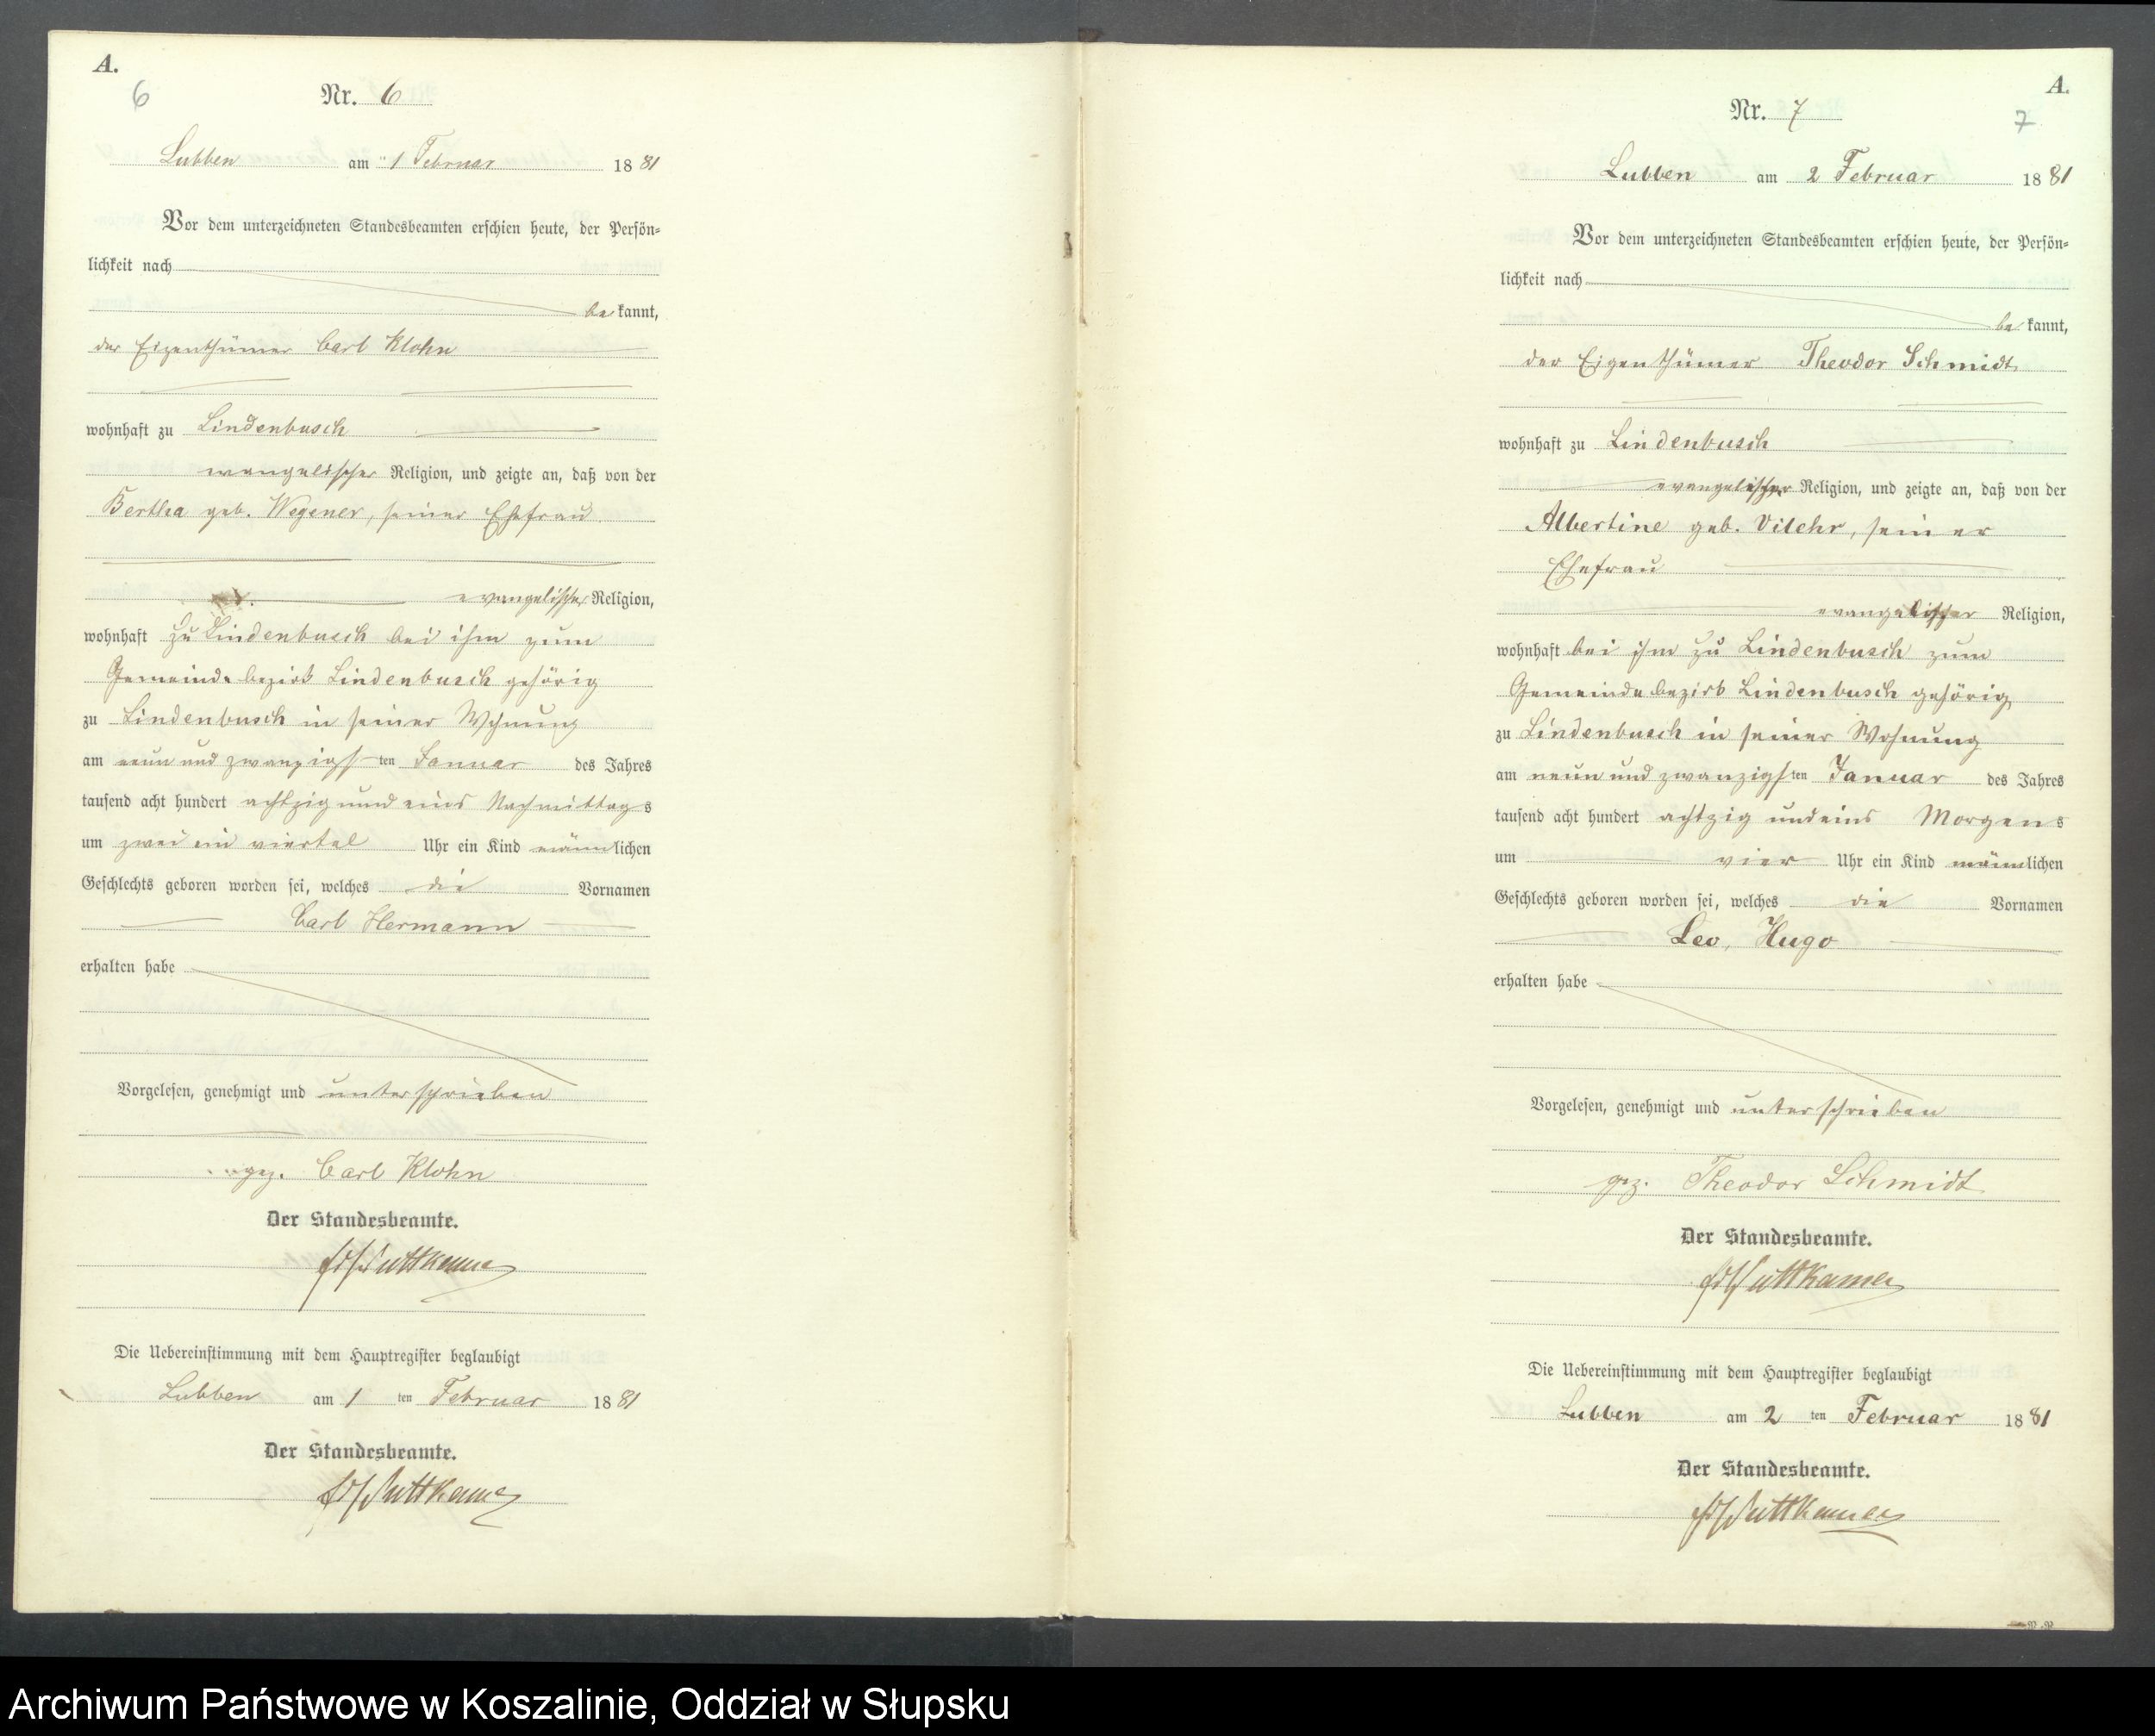 A.
6
Nr. 6
Lubben am 1 Februar 1881
Vor dem unterzeichneten Standesbeamten erschien heute, der Persön=
lichkeit nach
be kannt,
der Eigenthümer Carl Klohn
wohnhaft zu Lindenbusch
evangelischer Religion, und zeigte an, daß von der
Bertha geb. Wegener, seiner Ehefrau
evangelischer Religion,
wohnhaft zu Lindenbusch bei ihm zum
Gemeindebezirk Lindenbusch gehörig
zu Lindenbusch in seiner Wohnung
am neun und zwanzigsten Januar des Jahres
tausend acht hundert achtzig und eins Nachmittags
um zwei ein viertel Uhr ein Kind männlichen
Geschlechts geboren worden sei, welches die Vornamen
Carl Hermann
erhalten habe
Vorgelesen, genehmigt und unterschrieben
gez. Carl Klohn
Der Standesbeamte.
Puttkamer
Die Uebereinstimmung mit dem Hauptregister beglaubigt
Lubben am 1 ten Februar 1881
Der Standesbeamte.
Puttkamer
A.
7
Nr. 7
Lubben am 2 Februar 1881
Vor dem unterzeichneten Standesbeamten erschien heute, der Persön=
lichkeit nach
be kannt,
der Eigenthümer Theodor Schmidt
wohnhaft zu Lindenbusch
evangelischer Religion, und zeigte an, daß von der
Albertine geb. Vilehr, seiner
Ehefrau
evangelischer Religion,
wohnhaft bei ihm zu Lindenbusch zum
Gemeindebezirk Lindenbusch gehörig
zu Lindenbusch in seiner Wohnung
am neun und zwanzigsten Januar des Jahres
tausend acht hundert achtzig und eins Morgens
um vier Uhr ein Kind männlichen
Geschlechts geboren worden sei, welches die Vornamen
Leo, Hugo
erhalten habe
Vorgelesen, genehmigt und unterschrieben
gez. Theodor Schmidt
Der Standesbeamte.
Puttkamer
Die Uebereinstimmung mit dem Hauptregister beglaubigt
Lubben am 2 ten Februar 1881
Der Standesbeamte.
Puttkamer
Archiwum Państwowe w Koszalinie, Oddział w Słupsku